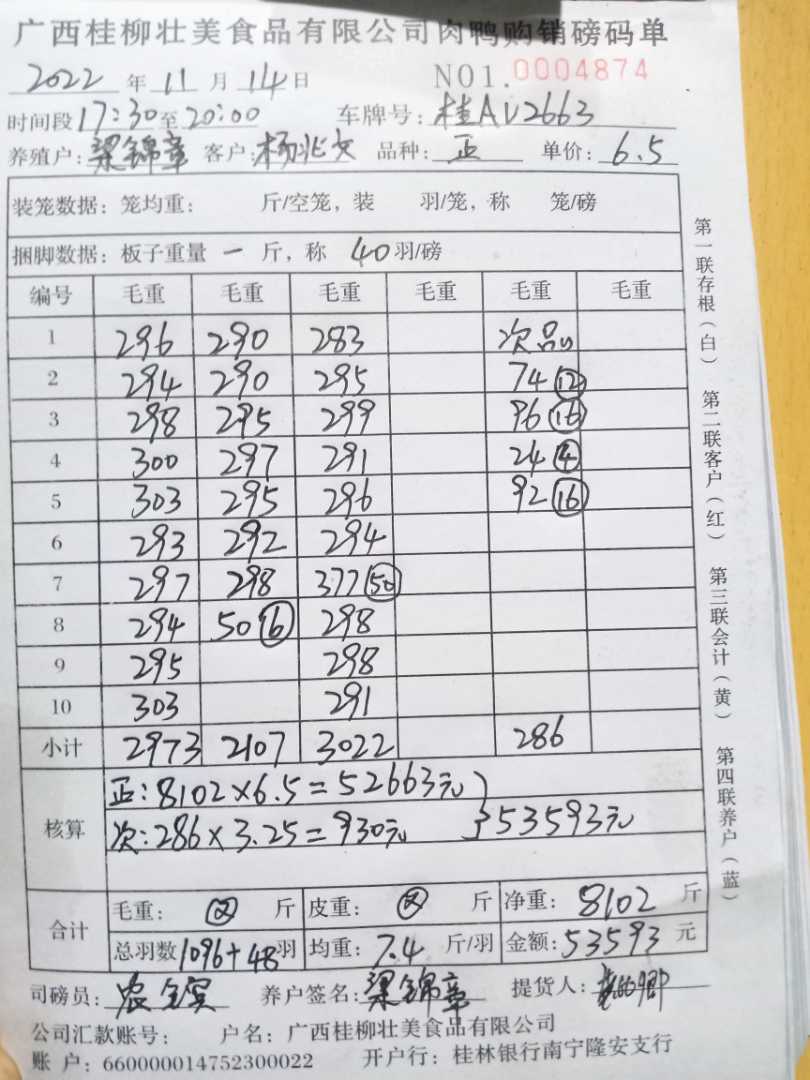 广西桂柳壮美食品有限公司肉鸭购销磅码单
2022 年 11 月 14 日 NO1. 0004874
时间段 17:30 至 20:00 车牌号: 桂AV2663
养殖户: 梁锦章 客户: 杨兆文 品种: 正 单价: 6.5
装笼数据: 笼均重: 斤/空笼, 装 羽/笼, 称 笼/磅
捆脚数据: 板子重量 一 斤, 称 40 羽/磅
编号 毛重 毛重 毛重 毛重 毛重 毛重
1 296 290 283 次品
2 294 290 295 74 12
3 298 295 299 96 16
4 300 297 291 24 4
5 303 295 296 92 16
6 293 292 294
7 297 298 377 50
8 294 50 298
9 295 298
10 303 291
小计 2973 2107 3022 286
核算 正: 8102×6.5=52663元
次: 286×3.25=930元 } 53593元
合计 毛重: 斤 皮重: 斤 净重: 8102 斤
总羽数 1096+48 羽 均重: 7.4 斤/羽 金额: 53593 元
司磅员: 农 养户签名: 梁锦章 提货人:
公司汇款账号: 户名: 广西桂柳壮美食品有限公司
账 户: 660000014752300022 开户行: 桂林银行南宁隆安支行
第一联存根(白) 第二联客户(红) 第三联会计(黄) 第四联养户(蓝)